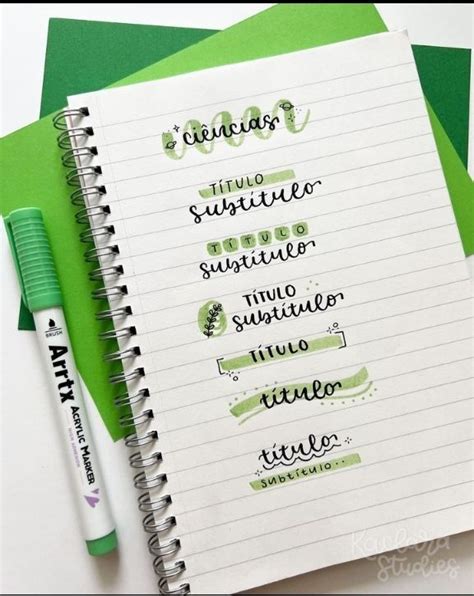 ciências
TÍTULO
subtítulo
TÍTULO
subtítulo
TÍTULO
subtítulo
TÍTULO
título
título
subtítulo..
BRUSH
Arrtx
ACRYLIC MARKER
studies